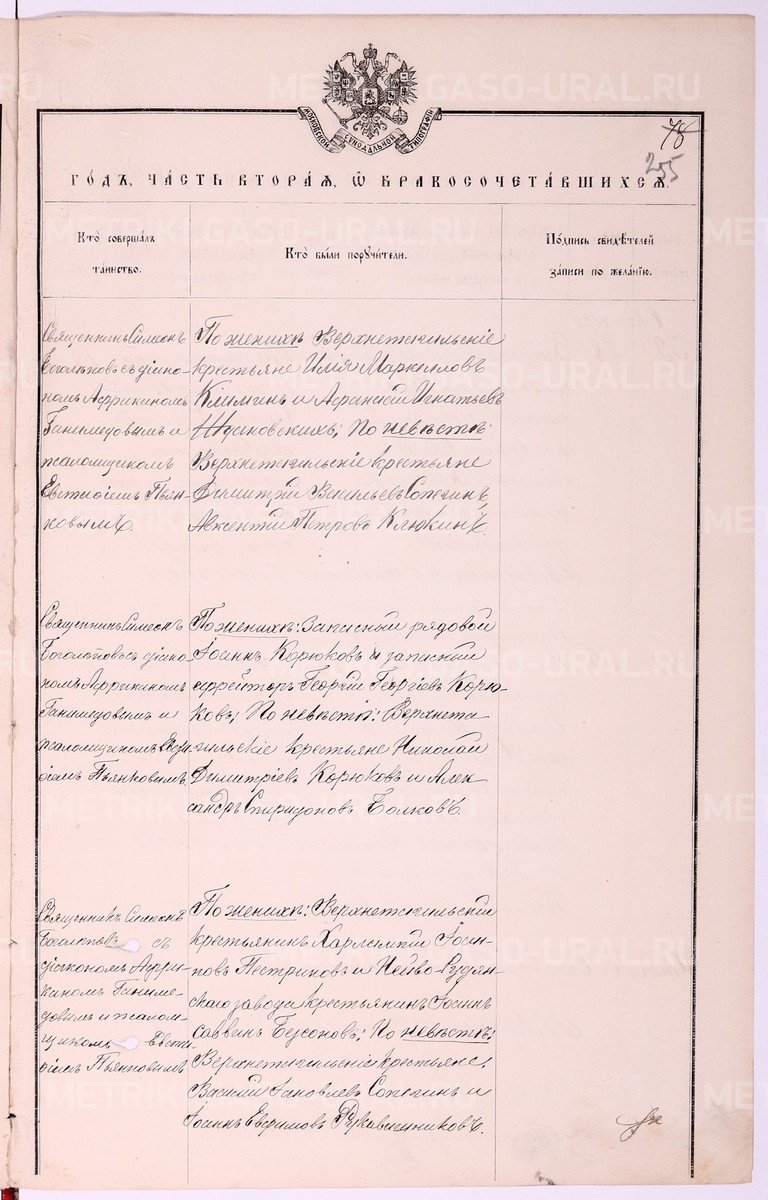 METRIKI.GASO-URAL.RU
МОСКОВСКОЙ СѴНОДАЛЬНОЙ ТИПОГРАФІИ
78
255
ГОДЪ, ЧАСТЬ ВТОРАЯ, Ѿ БРАКОСОЧЕТАВШИХСЯ.
Кто совершалъ
таинство.
Кто были поручители.
Подпись свидѣтелей
записи по желанію.
Священникъ Симеонъ
Боголѣповъ съ діако-
номъ Африканомъ
Ганимедовымъ и
псаломщикомъ
Евстаѳіемъ Пьян-
ковымъ.
По женихѣ: Верхнетагильскіе
крестьяне Илія Маркеловъ
Климинъ и Афанасій Игнатьевъ
По невѣстѣ:
Верхнетагильскіе крестьяне
Димитрій Васильевъ Сопегинъ,
Авксентій Петровъ Клюкинъ.
Священникъ Симеонъ
Боголѣповъ съ діако-
номъ Африканомъ
Ганимедовымъ и
псаломщикомъ Евста-
ѳіемъ Пьянковымъ.
По женихѣ: Запасный рядовой
Іоаннъ Корюковъ и запасный
ефрейторъ Георгій Георгіевъ Корю-
ковъ; По невѣстѣ: Верхнета-
гильскіе крестьяне Николай
Димитріевъ Корюковъ и Алек-
сандръ Спиридоновъ Волковъ.
Священникъ Симеонъ
Боголѣповъ съ
діакономъ Афри-
каномъ Ганиме-
довымъ и псалом-
щикомъ Евста-
ѳіемъ Пьянковымъ
По женихѣ: Верхнетагильскій
крестьянинъ Харлампій Іоан-
новъ Пестриковъ и Нейво-Рудян-
скаго завода крестьянинъ Іоаннъ
Саввинъ Безсоновъ; По невѣстѣ:
Верхнетагильскіе крестьяне:
Василій Іаковлевъ Сопегинъ и
Іоаннъ Евфимовъ Рукавишниковъ.